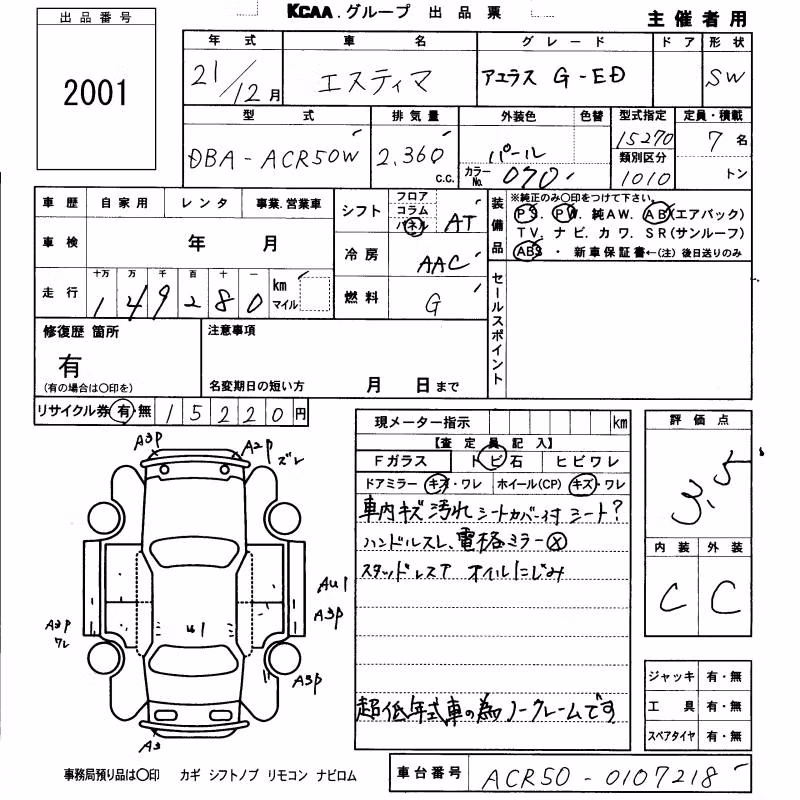 KCAA.グループ 出品票
主催者用
出品番号
2001
年式 車名 グレード ドア 形状
21/12月 エスティマ アエラス G-ED SW
型式 排気量 外装色 色替 型式指定 定員・積載
DBA-ACR50W 2,360 c.c. パール 15270 7名
カラーNo. 070 類別区分 1010 トン
車歴 自家用 レンタ 事業.営業車
車検 年 月
走行 十万 万 千 百 十 一 km マイル
149280
シフト フロア コラム パネル AT
冷房 AAC
燃料 G
装備品 ※純正のみ〇印をつけて下さい。
PS. PW. 純AW. AB(エアバック)
TV. ナビ. カワ. SR(サンルーフ)
ABS ・ 新車保証書←(注) 後日送りのみ
セールスポイント
修復歴 箇所
有
(有の場合は〇印を)
注意事項
名変期日の短い方 月 日まで
リサイクル券 有・無 15220円
現メーター指示 km
【査定員記入】
Fガラス トビ石 ヒビワレ
ドアミラー キズ・ワレ ホイール(CP) キズ・ワレ
車内キズ 汚れ シートカバー付 シート?
ハンドルスレ、電格ミラー ⓧ
スタッドレスア オイルにじみ
超低年式車の為ノークレームです
評価点
3,5
内装 外装
C C
ジャッキ 有・無
工具 有・無
スペアタイヤ 有・無
A3P
A2P
ズレ
AU1
A3P
A3P
ワレ
A3P
A3
事務局預り品は〇印 カギ シフトノブ リモコン ナビロム
車台番号 ACR50-0107218